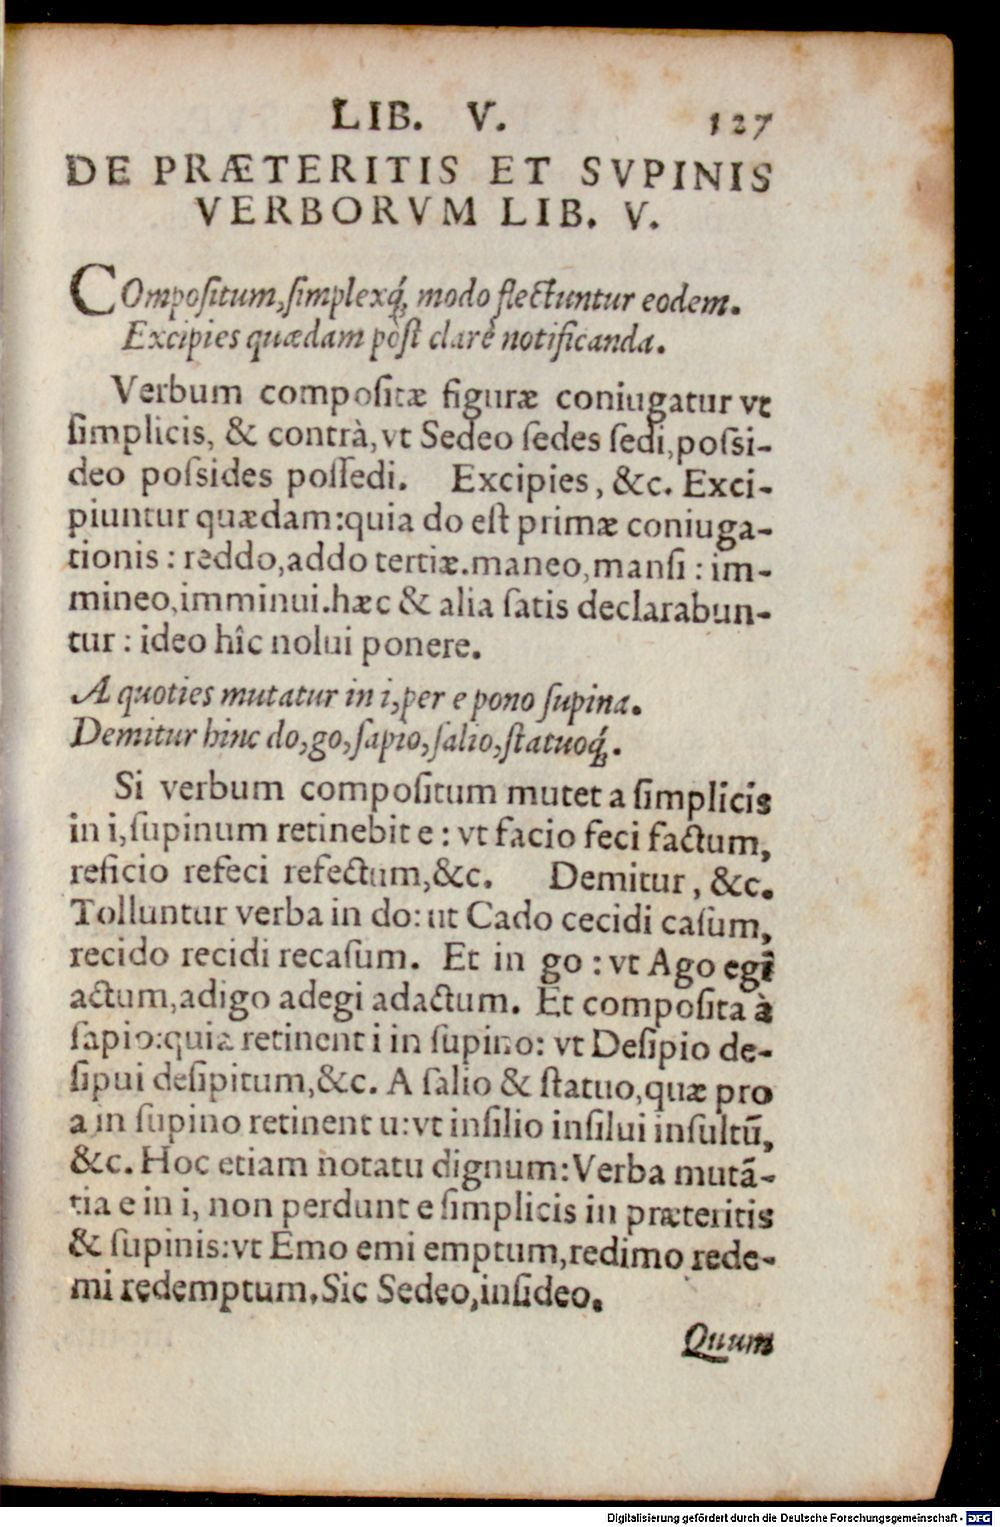 LIB. V. 127
DE PRÆTERITIS ET SVPINIS
VERBORVM LIB. V.
COmpoſitum,ſimplexq́; modo flectuntur eodem.
Excipies quædam pòſt clarè notificanda.
Verbum compoſitæ figuræ coniugatur vt
ſimplicis, & contrà,vt Sedeo ſedes ſedi,poſsi-
deo poſsides poſſedi. Excipies, &c. Exci-
piuntur quædam:quia do eſt primæ coniuga-
tionis : reddo,addo tertiæ.maneo,manſi : im-
mineo,imminui.hæc & alia ſatis declarabun-
tur : ideo hîc nolui ponere.
A quoties mutatur in i,per e pono ſupina.
Demitur hinc do,go,ſapio,ſalio,ſtatuoq́;.
Si verbum compoſitum mutet a ſimplicis
in i,ſupinum retinebit e : vt facio feci factum,
reficio refeci refectum,&c. Demitur, &c.
Tolluntur verba in do: ut Cado cecidi caſum,
recido recidi recaſum. Et in go : vt Ago egi
actum,adigo adegi adactum. Et compoſita à
ſapio:quia retinent i in ſupino: vt Deſipio de-
ſipui deſipitum,&c. A ſalio & ſtatuo,quæ pro
a in ſupino retinent u:vt inſilio inſilui inſultū,
&c. Hoc etiam notatu dignum:Verba mutā-
tia e in i, non perdunt e ſimplicis in præteritis
& ſupinis:vt Emo emi emptum,redimo rede-
mi redemptum.Sic Sedeo,inſideo.
Quum
Digitalisierung gefördert durch die Deutsche Forschungsgemeinschaft - DFG